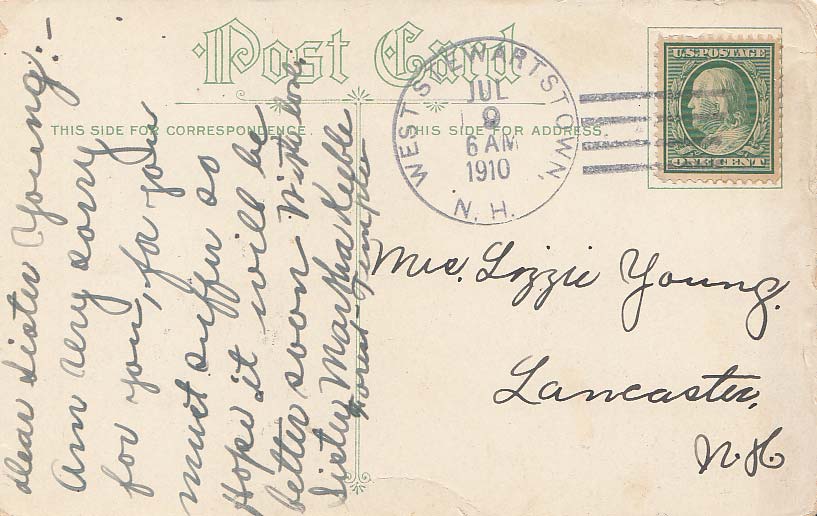 Post Card
THIS SIDE FOR CORRESPONDENCE.
THIS SIDE FOR ADDRESS.
WEST STEWARTSTOWN, N. H.
JUL
9
6 AM
1910
U.S. POSTAGE
ONE CENT
Dear Sister Young:-
Am very sorry
for you, for you
must suffer so
Hope it will be
better soon With love,
Sister Martha Keeble
Forest Temple
Mrs. Lizzie Young.
Lancaster,
N.H.